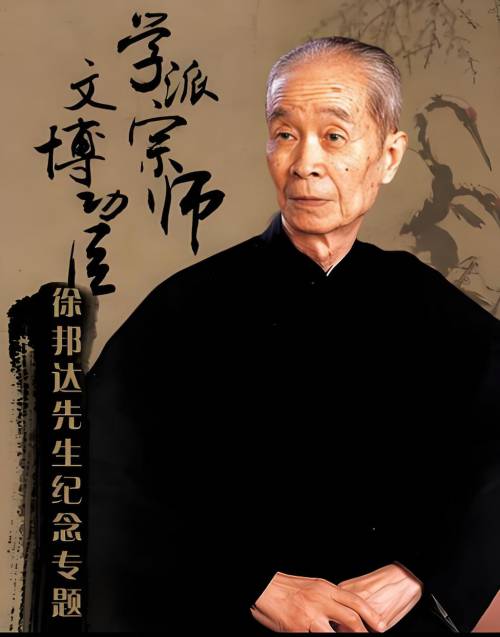 学派宗师
文博功臣
徐邦达先生纪念专题